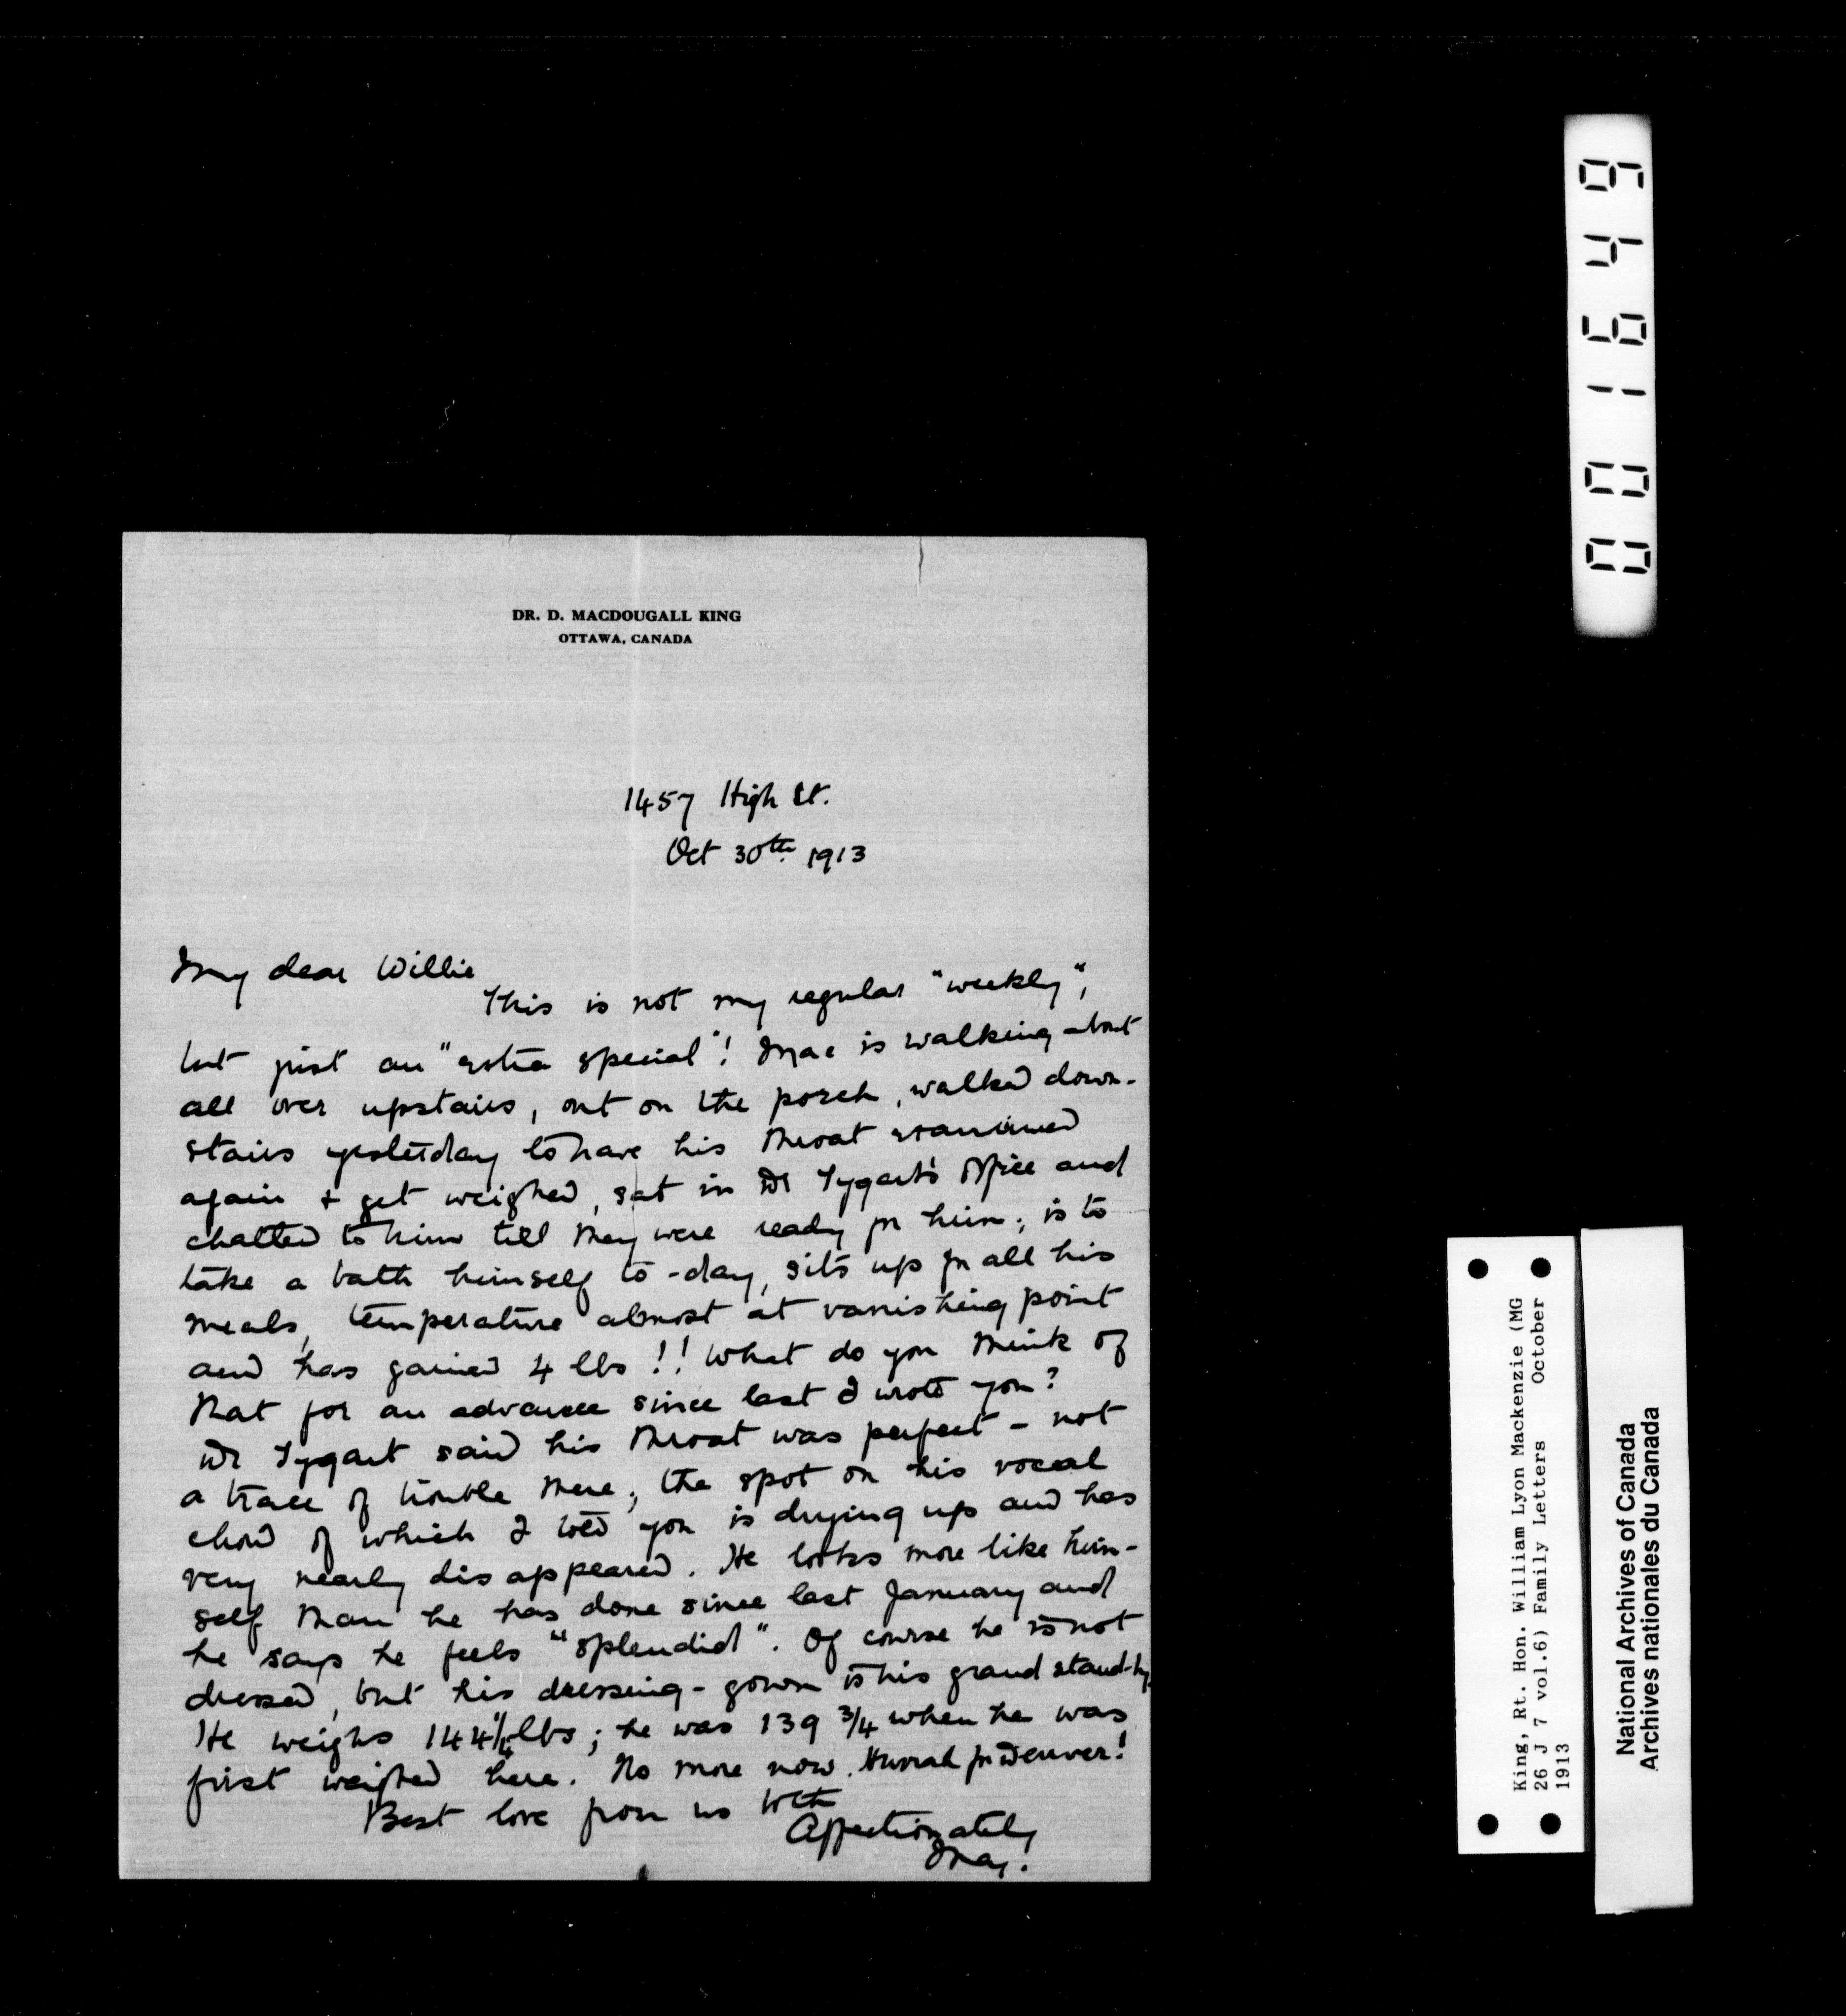 DR. D. MACDOUGALL KING
OTTAWA, CANADA
1457 High St.
Oct 30th 1913
My dear Willie
This is not my regular "weekly",
but just an "extra special"! Mac is walking about
all over upstairs, out on the porch, walked down-
stairs yesterday to have his throat examined
again + get weighed, sat in Dr Tygart's office and
chatted to him till they were ready for him; is to
take a bath himself to-day, sits up for all his
meals, temperature almost at vanishing point
and has gained 4 lbs!! What do you think of
that for an advance since last I wrote you?
Dr Tygart said his throat was perfect - not
a trace of trouble there; the spot on his vocal
chord of which I told you is drying up and has
very nearly disappeared. He looks more like him-
self than he has done since last January and
he says he feels "splendid". Of course he is not
dressed, but his dressing-gown is his grand stand-by.
He weighs 144 1/4 lbs; he was 139 3/4 when he was
first weighed here. No more now. Hurrah for Denver!
Best love from us both
Affectionately
May.
001649
King, Rt. Hon. William Lyon Mackenzie (MG
26 J 7 vol.6) Family Letters October
1913
National Archives of Canada
Archives nationales du Canada